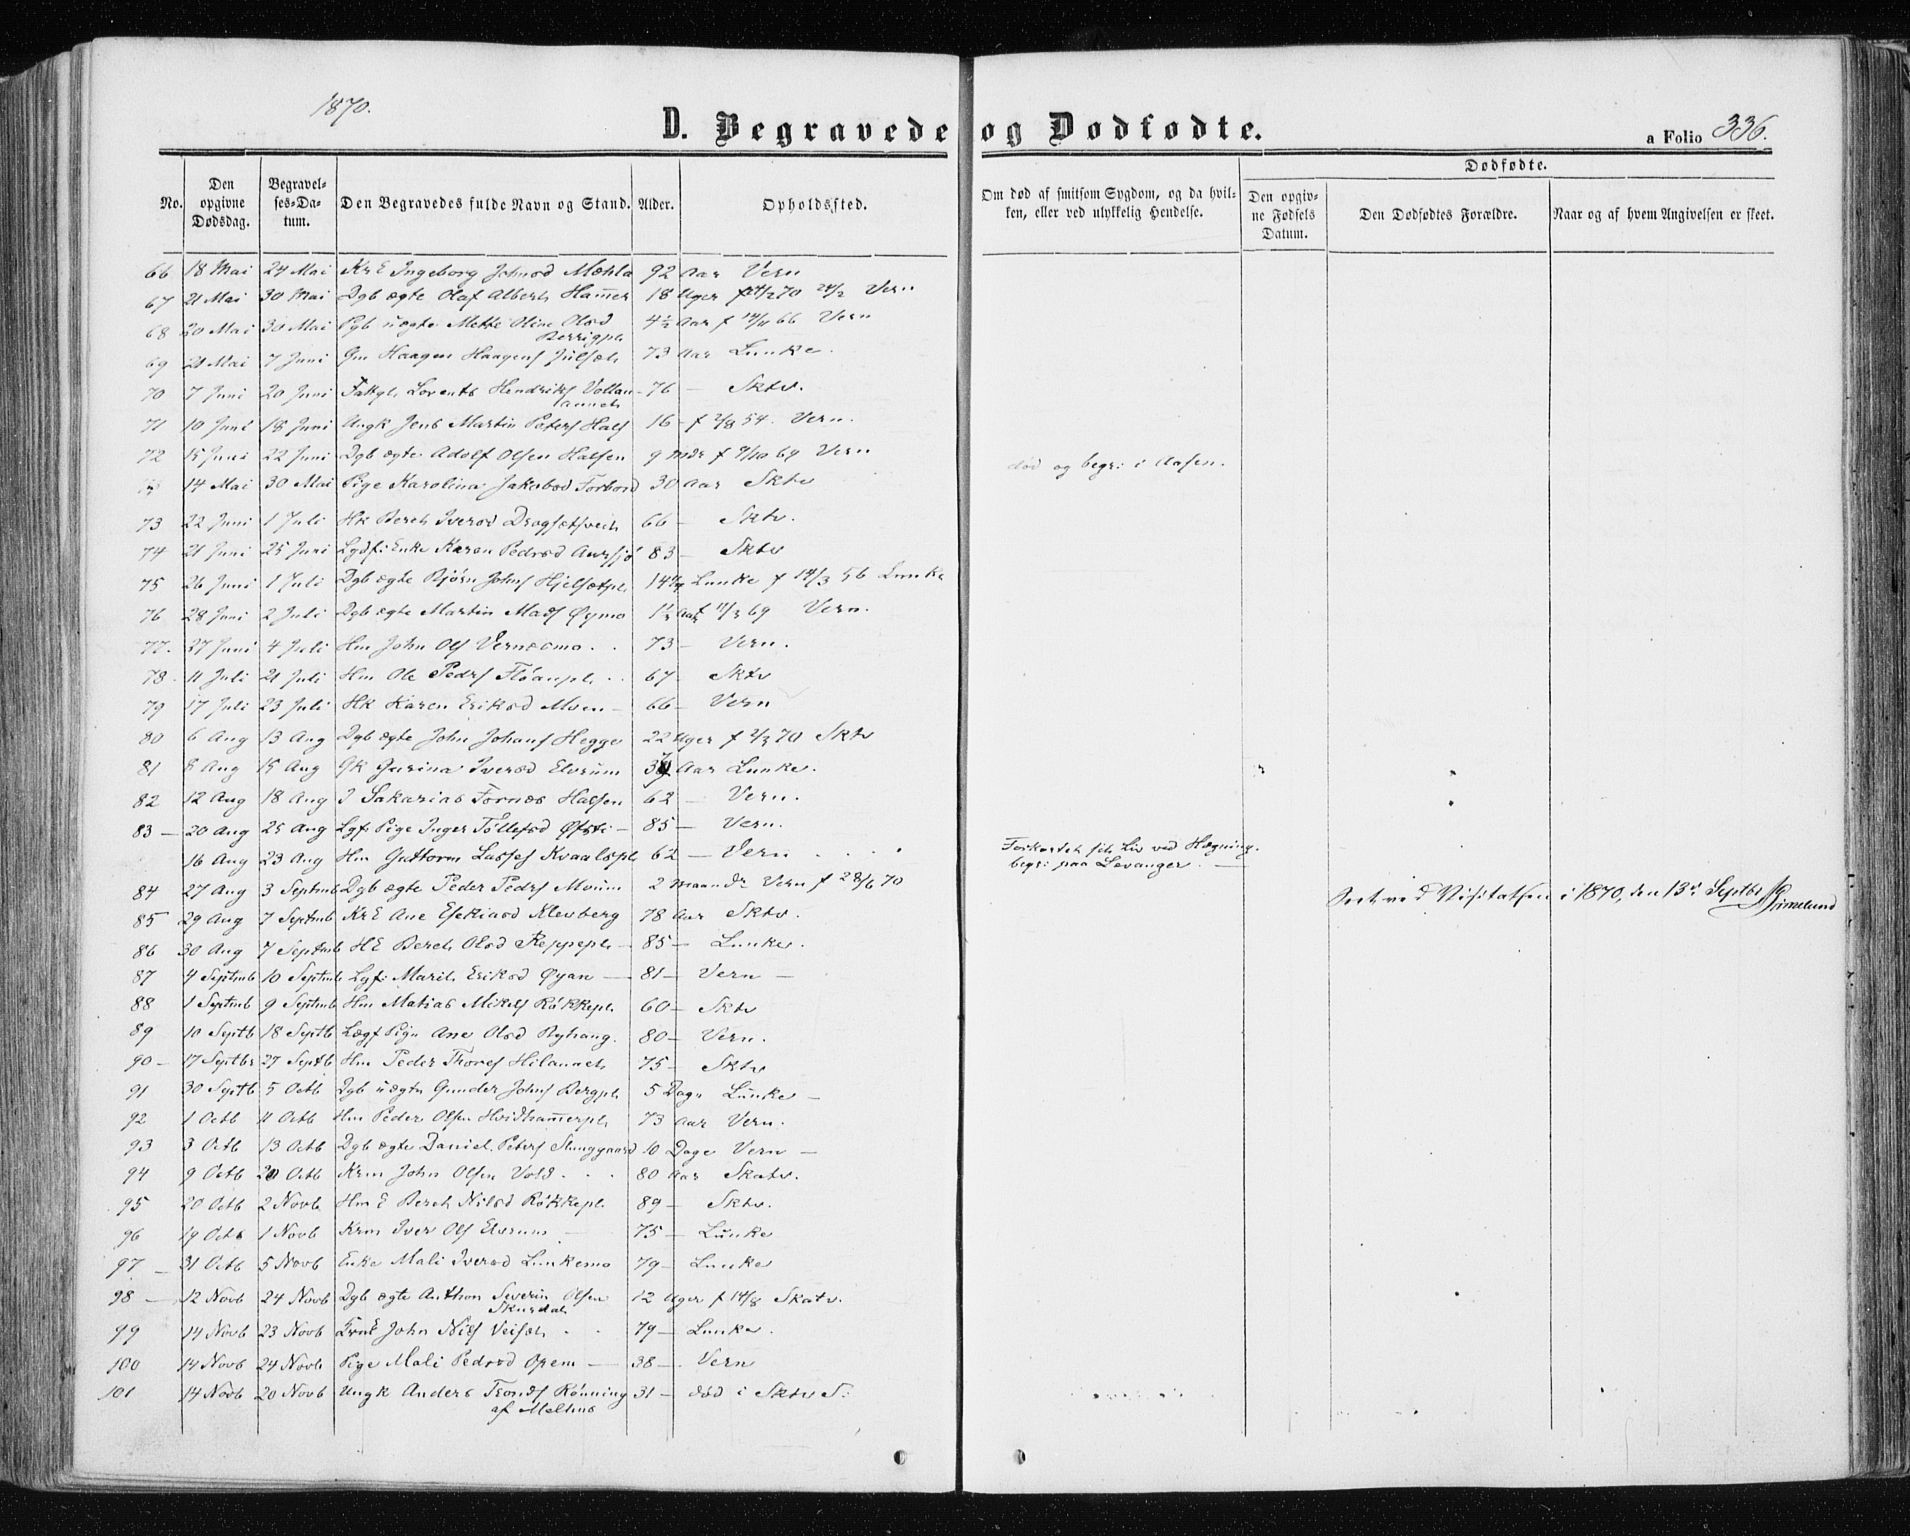 1870.
D. Begravede og Dødfødte.
a Folio 336.
No.
Den opgivne Dødsdag.
Begravelses-Datum.
Den Begravedes fulde Navn og Stand.
Alder.
Opholdssted.
Om død af smitsom Sygdom, og da hvilken, eller ved ulykkelig Hendelse.
Dødfødte.
Den opgivne Fødsels Datum.
Den Dødfødtes Forældre.
Naar og af hvem Angivelsen er skeet.
66 18 Mai 24 Mai KrE Ingeborg Johnsd Mæhla 92 Aar Vern
67 21 Mai 30 Mai Dgb ægte Olaf Albert Hammer 18 Uger Vern
68 20 Mai 30 Mai Pgb uægte Mette Oline Olsd 4½ Aar f 14/11 66 Vern
69 21 Mai 7 Juni Gm Haagen Haagens 73 Aar Lunke.
70 7 Juni 20 Juni Lorents Hendriks Vollan 76 — Sktv.
71 10 Juni 18 Juni Ungk Jens Martin Peters Hals 16 — f 2/8 54. Vern.
72 15 Juni 22 Juni Dgb ægte Adolf Olsen Halsen 9 Mdr f 9/10 69 Vern
14 Mai 30 Mai Pige Karolina Jakobsd Forbord 30 Aar Sktv død og begr: i Aasen.
73 22 Juni 1 Juli Hk Beret Iversd 66 — Sktv.
74 21 Juni 25 Juni Enke Karen Pedrsd 83 — Sktv
75 26 Juni 1 Juli Dgb ægte Bjørn Johns Hjelsetpl 14¼ Lunke f 14/3 56 Lunke
76 28 Juni 2 Juli Dgb ægte Martin Mads Øymo Aar f 11/3 69 Vern.
77. 27 Juni 4 Juli Hm John Ols Vernesmo 73 — Vern.
78 11 Juli 21 Juli Hm Ole Pedrs Fløanpl 67 — Sktv
79 17 Juli 23 Juli Hk Karen Eriksd Moen — 66 — Vern
80 6 Aug 13 Aug Dgb ægte John Johans Hegge 22 Uger f 2/3 70 Sktv
81 8 Aug 15 Aug Gk Gurina Iversd Elvrum Aar Lunke.
82 12 Aug 18 Aug I Sakarias Fornes Halsen 62 — Vern.
83 — 20 Aug 25 Aug Lgf: Pige Inger Tollefsd Øfsti — 85 — Vern.
16 Aug 23 Aug Hm Guttorm Lasses Kvaalspl 62 — Vern Forkortet sit Liv ved Hægning.
begr: paa Levanger.
84 27 Aug 3 Septmb Dgb ægte Peder Pedrs Moum 2 Maandr Vern f 28/6 70
Seet ved Visitatsen i 1870, den 13de Septbr
85 29 Aug 7 Septmb KrE Ane Esekiasd Klevberg 78 Aar Sktv.
86 30 Aug 7 Septmb HE Beret Olsd Reppepl — 85 — Lunke
87 4 Septmb 10 Septmb Lgf: Marit Eriksd Øyan — 81 — Vern —
88 1 Septmb 9 Septmb Hm Matias Mikels Røkkepl. 60 — Sktv
89 10 Septb 18 Septb Lægf Pign Ane Olsd Ryhaug. 80 — Vern.
90 — 17 Septbr 27 Septb Hm Peder Thores Hilannet 75 — Sktv
91 30 Septb 5 Octb Dgb uægte Gunder Johns Bergpl 5 Dage Lunke —
92 1 Octb 11 Octb Hm Peder Olsen Hvidhammerpl 73 Aar Vern.
93 3 Octb 13 Octb Dgb ægte Daniel Peters 10 Dage Vern —
94 9 Octb 20 Octb Krm John Olsen Vold 80 Aar Skatv.
95 20 Octb 2 Novb. HmE Beret Nilsd Røkkepl. 89 — Sktv.
96 19 Octb 1 Novb Krm Iver Ols Elvrum 75 — Lunke
97 — 31 Octb 5 Novb Enke Mali Iversd Lunkemo 79 — Lunke
98 — 12 Novb 24 Novb Dgb ægte Anthon Severin Olsen 12 Uger f 14/8 Skatv.
99 14 Novb 23 Novb John Nils Veiset 79 — Lunke.
100 14 Novb 24 Novb Pige Mali Pedrsd Opem — 38 — Vern
101 14 Novb 20 Novb Ungk Anders Tronds Rønning 31 — død i Sktv S:
af Melhus